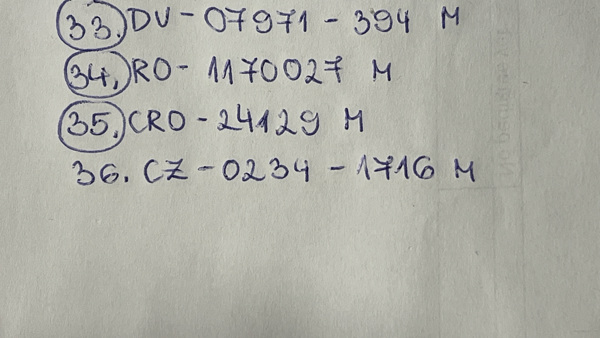 33. DV - 07971 - 394 M
34. RO - 1170027 M
35. CRO - 24129 M
36. CZ - 0234 - 1716 M